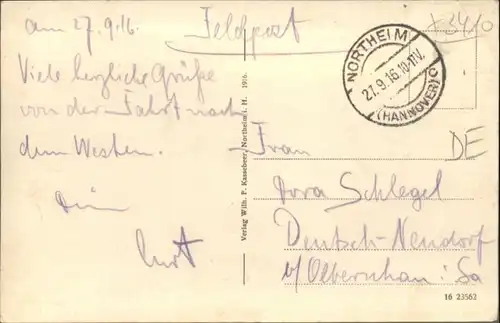 am 27.9.16.
Feldpost
Viele herzliche Grüße
von der Fahrt nach
dem Westen.
Dein
Curt
Verlag Wilh. P. Kassebeer, Northeim i. H. 1916.
NORTHEIM
27.9.16.10-11V.
(HANNOVER) C
Frau
DE
Dora Schlegel
Deutsch-Neudorf
b/Olbernhau i Sa
16 23562